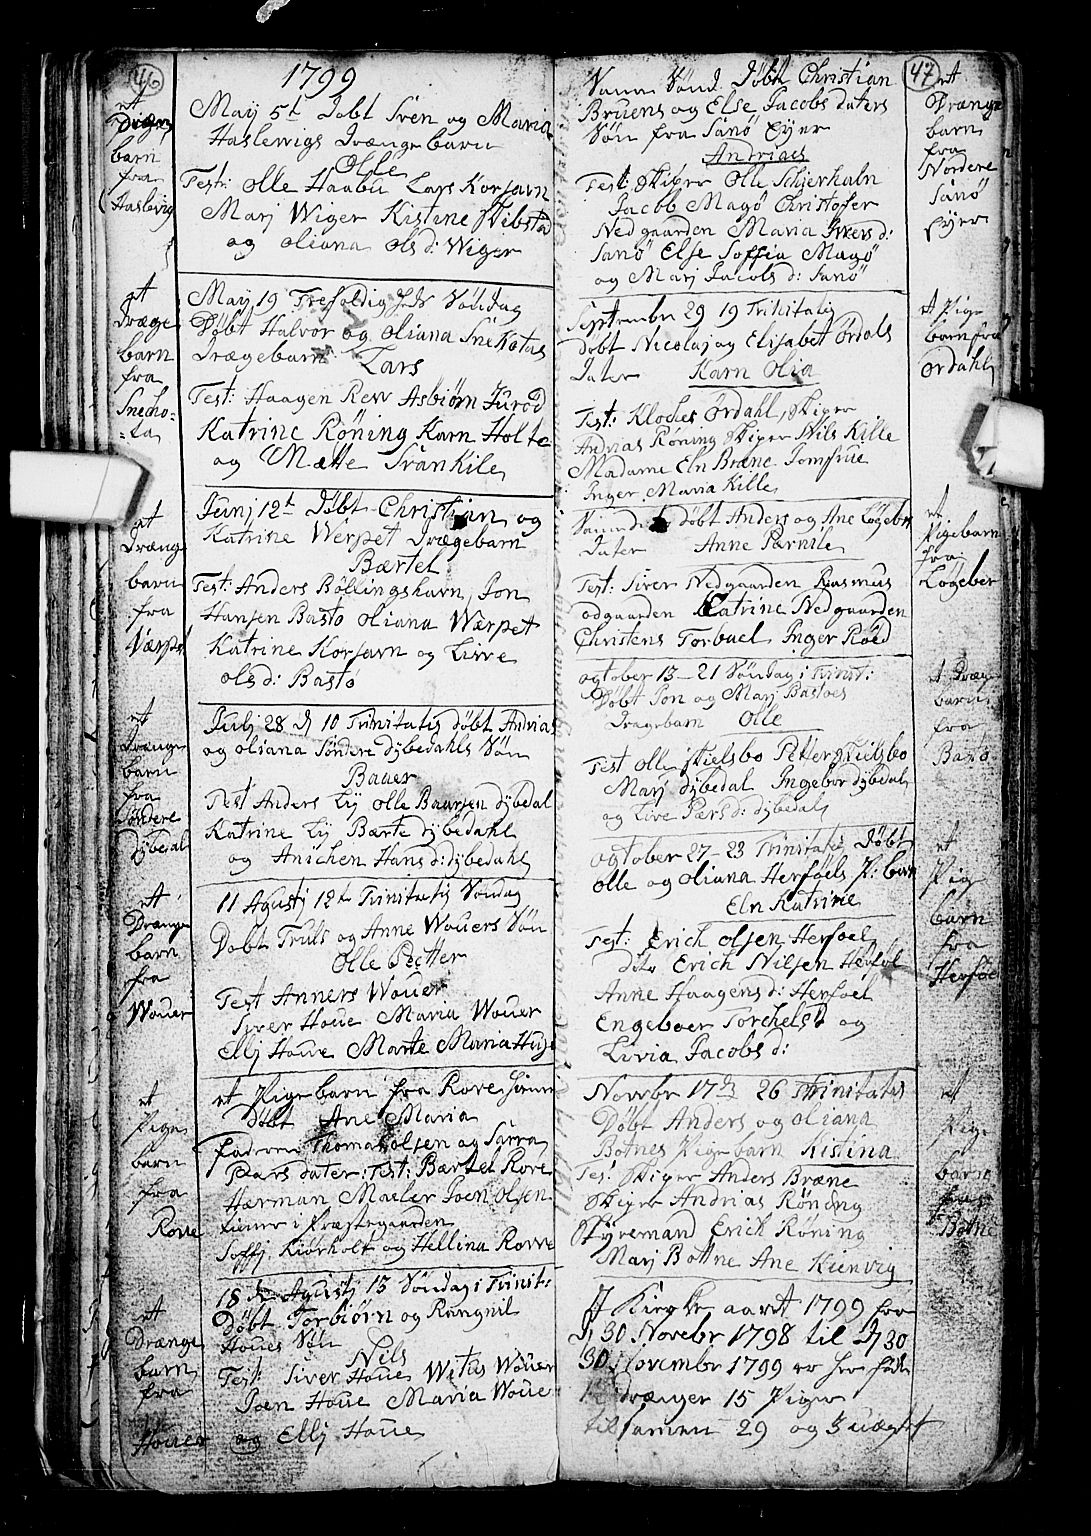 46
1799
et
Dreng
barn
fra
Haslevig
May 5t Døbt Sven og Maria
Haslewigs Drængebarn
Olle
Test: Olle Haabu Lars Korsavn
Marj Wiger Kistene Skibstad
og oliana ols d: Wiger
et
Dræge
barn
fra
Snecho-
-ta
May 19 Trefoldig Søndag
Døbt Halvor og oliana Snekotas
Drægebarn Lars
Test: Haagen Rew Asbiørn Jurod
Katrine Røning Karn Holte
og Mætte Srankile
et
Dræng
barn
fra
Værpe
Junj 12t Døbt Christian og
Katrine Werpet Drægebarn
Bærtel
Test: Anders Bøllingshavn, Jon
Hansen Bastø oliana Wærpet
Katrine Korsavn og Livre
ols d: Bastø
et
Drænge
barn
fra
Søndere
Dybedal
Julj 28 d 10 Trinitatis døbt Andrias
og oliana Søndere dybedahls Søn
Bauer
Test Anders Lij olle Baarsen dybedal
Katrine Lij Bærte dybedahl
og Anichen Hans d: dybedahl
et
Drænge
barn
fra
Wouer
11 Agustj 12te Trinitatis Søndag
Døbt Truls og Anne Wouers Søn
Olle Petter
Test Anners Wouer
Siver Houe Maria Wouer
Ellj Houe Marte Maria
et
Pige
barn
fra
Rove
et Pigebarn fra Rove
Døbt Ane Maria
faderen Thomas olsen og Sarra
Pears dater: Test: Bærtel Rove
Hærman Maeler Joen olsen
tiener i Præstegaarden
Soffj Kiørholt og Hellina Rovre
et
Drænge
barn
fra
Houer
18 d Agustj 13 Søndag i Trinit:
Døbt Torbiørn og Rangnil
Houes Søn
Nils
Test: Siver Houe Witus Wouer
Joen Houe Maria Woue
og Ellj Houe
47
Samme Sønd. Døbt Christian
Bruens og Else Jacobs daters
Søn fra Sanø Eyer
Andrias
Test: Skiper Olle Schierhaln
Jacob Magø Christofer
Nedgaarden Maria Ivers d:
Sanø Else Soffia Magø
og Marj Jacobs d: Sanø
et
Drænge
barn
fra
Nordere
Sanø
Eyer
September 29 19 Trinitatis
døbt Nicolaj og Elisabet Ørdals
Dater Karn Olia
Test: Klocher Ørdahl, Skiper
Andrias Røning Skiper Nils Kille
Madame Eln Bræne Jomfrue
Inger Maria Kille
et Pige
barn fra
Ordahl
Samme døbt Anders og Ane Løgeber
Dater Anne Parnile
Test: Siver Nedgaarden Rasmus
odgaarden Catrine Nedgaarden
Christens Torbael Inger Røed
et
Pigebarn
fra
Løgeber
ogtober 13-21 Søndag i Trinit:
Døbt Jon og Marj Bastøes
Dragebarn Olle
Test olle Skielsbo Petter Skielsbo
Marj dybedal Ingebor dybedal
og Live Pærs d: dybedals
et Dræge
barn
fra
Bastø
ogtober 27-23 Trinitatis Døbt
olle og oliana Herføels P: barn
Eln Katrine
Test: Erich olsen Herføel
dito Erich Nilsen Herføl
Anne Haagens d: Herføel
Engeboer Torchels d og
Livia Jacobs d:
et
Pige
barn
fra
Herføel
Novebr 17d 26 Trinitatis
Døbt Anders og oliana
Botnes Pigebarn Kistina
Tes: Skiper Anders Bræne
Skiper Andrias Røning
Styremand Erich Røning
Marj Bottne Ane Kienvig
et
Pige
barn
fra
Botne
I Kirche aaret 1799 fra
d 30 Novebr 1798 til d 30
30 November 1799 er her fødte
drænger 15 Piger
tilsamen 29 og 3 uægte